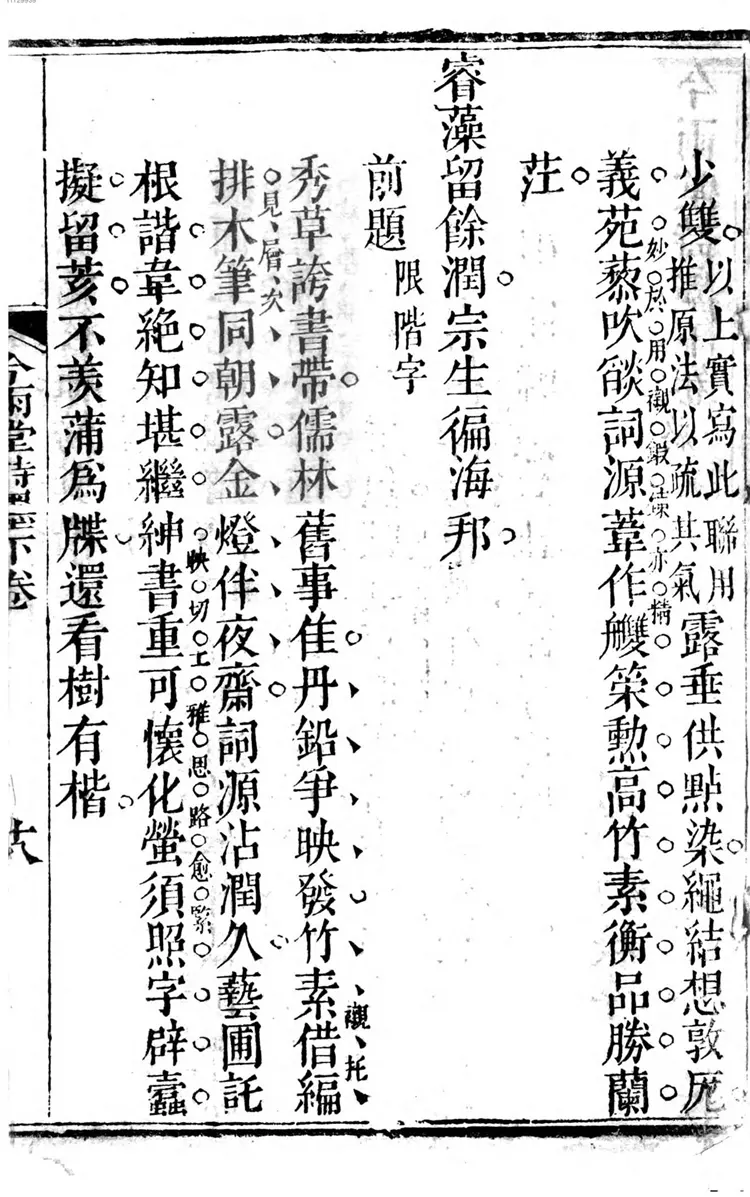 少雙以上實寫此聯用推原法以疏其氣露垂供點染繩結想敦厖
妙於用襯鍛湅亦精
義苑蒸吹餤詞源葦作艭策勲高竹素衡品勝蘭
茳
睿藻留餘潤宗生徧海邦
前題限階字
襯托
秀草誇書帶儒林舊事佳丹鉛爭映發竹素借編
見層次
排木筆同朝露金燈伴夜齋詞源沾潤久藝圃託
映切工雅思路愈緊
根諧韋絕知堪繼紳書重可懷化螢須照字辟蠹
擬留荄不羡蒲爲牒還看樹有楷
今雨堂詩墨下卷
六